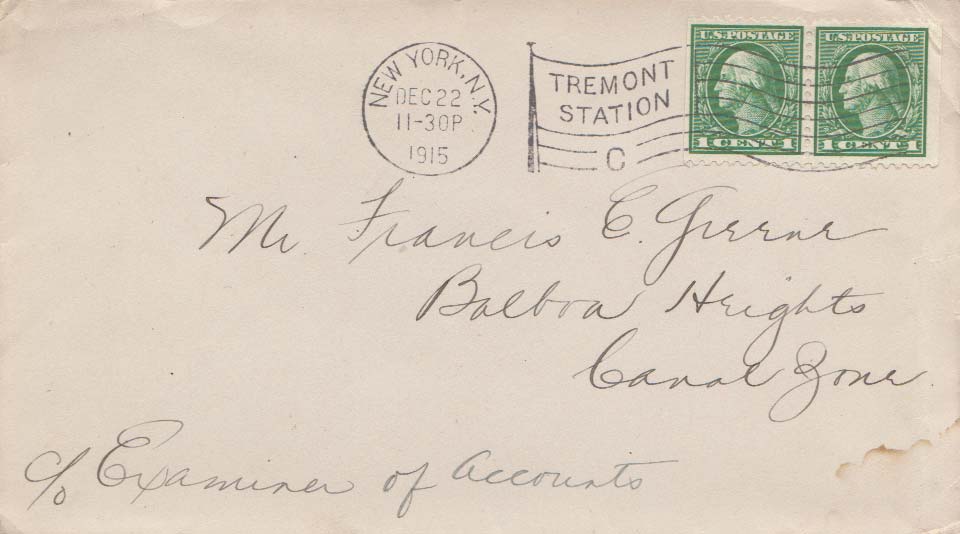 NEW YORK, N.Y.
DEC 22
11-30P
1915
TREMONT
STATION
C
U.S. POSTAGE
1 CENT 1
U.S. POSTAGE
1 CENT 1
Mr. Francis E. Greene
Balboa Heights
Canal Zone.
c/o Examiner of Accounts